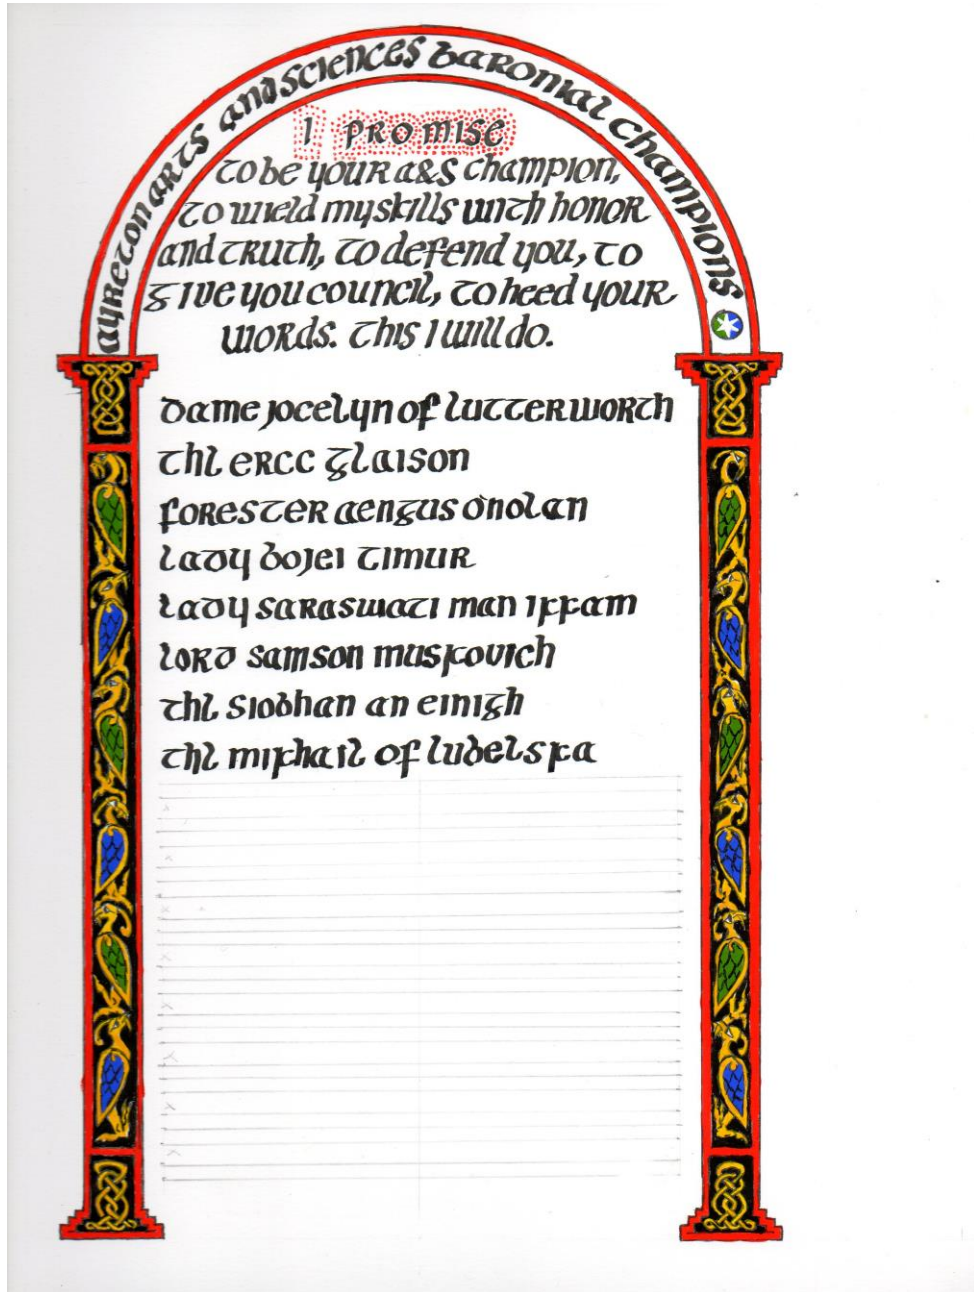 ayreton arts and sciences baronial champions
I promise
to be your a&s champion,
to wield my skills with honor
and truth, to defend you, to
give you council, to heed your
words. This I will do.
Dame Jocelyn of Lutterworth
Thl Ercc Glaison
Forester Aengus O'Nolan
Lady Bojei Timur
Lady Saraswati Man Ikkam
Lord Samson Muskovich
Thl Siobhan an Einigh
Thl Mikhail of Lubelska